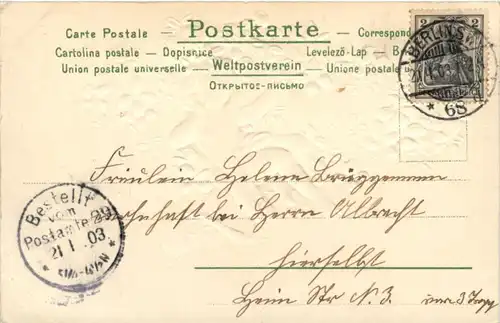 Carte Postale — Postkarte — Correspond
Cartolina postale — Dopisnice — Levelező-Lap — B
Union postale universelle — Weltpostverein — Unione postale
Открытое-письмо
2 2
BERLIN S.W.
* 68
Fräulein Helene Brüggemann
wohnhaft bei Herrn Albracht
hierselbst
Heim Str N. 3. 3 Trepp
Bestellt
vom
Postamte 29
21 1. 03.